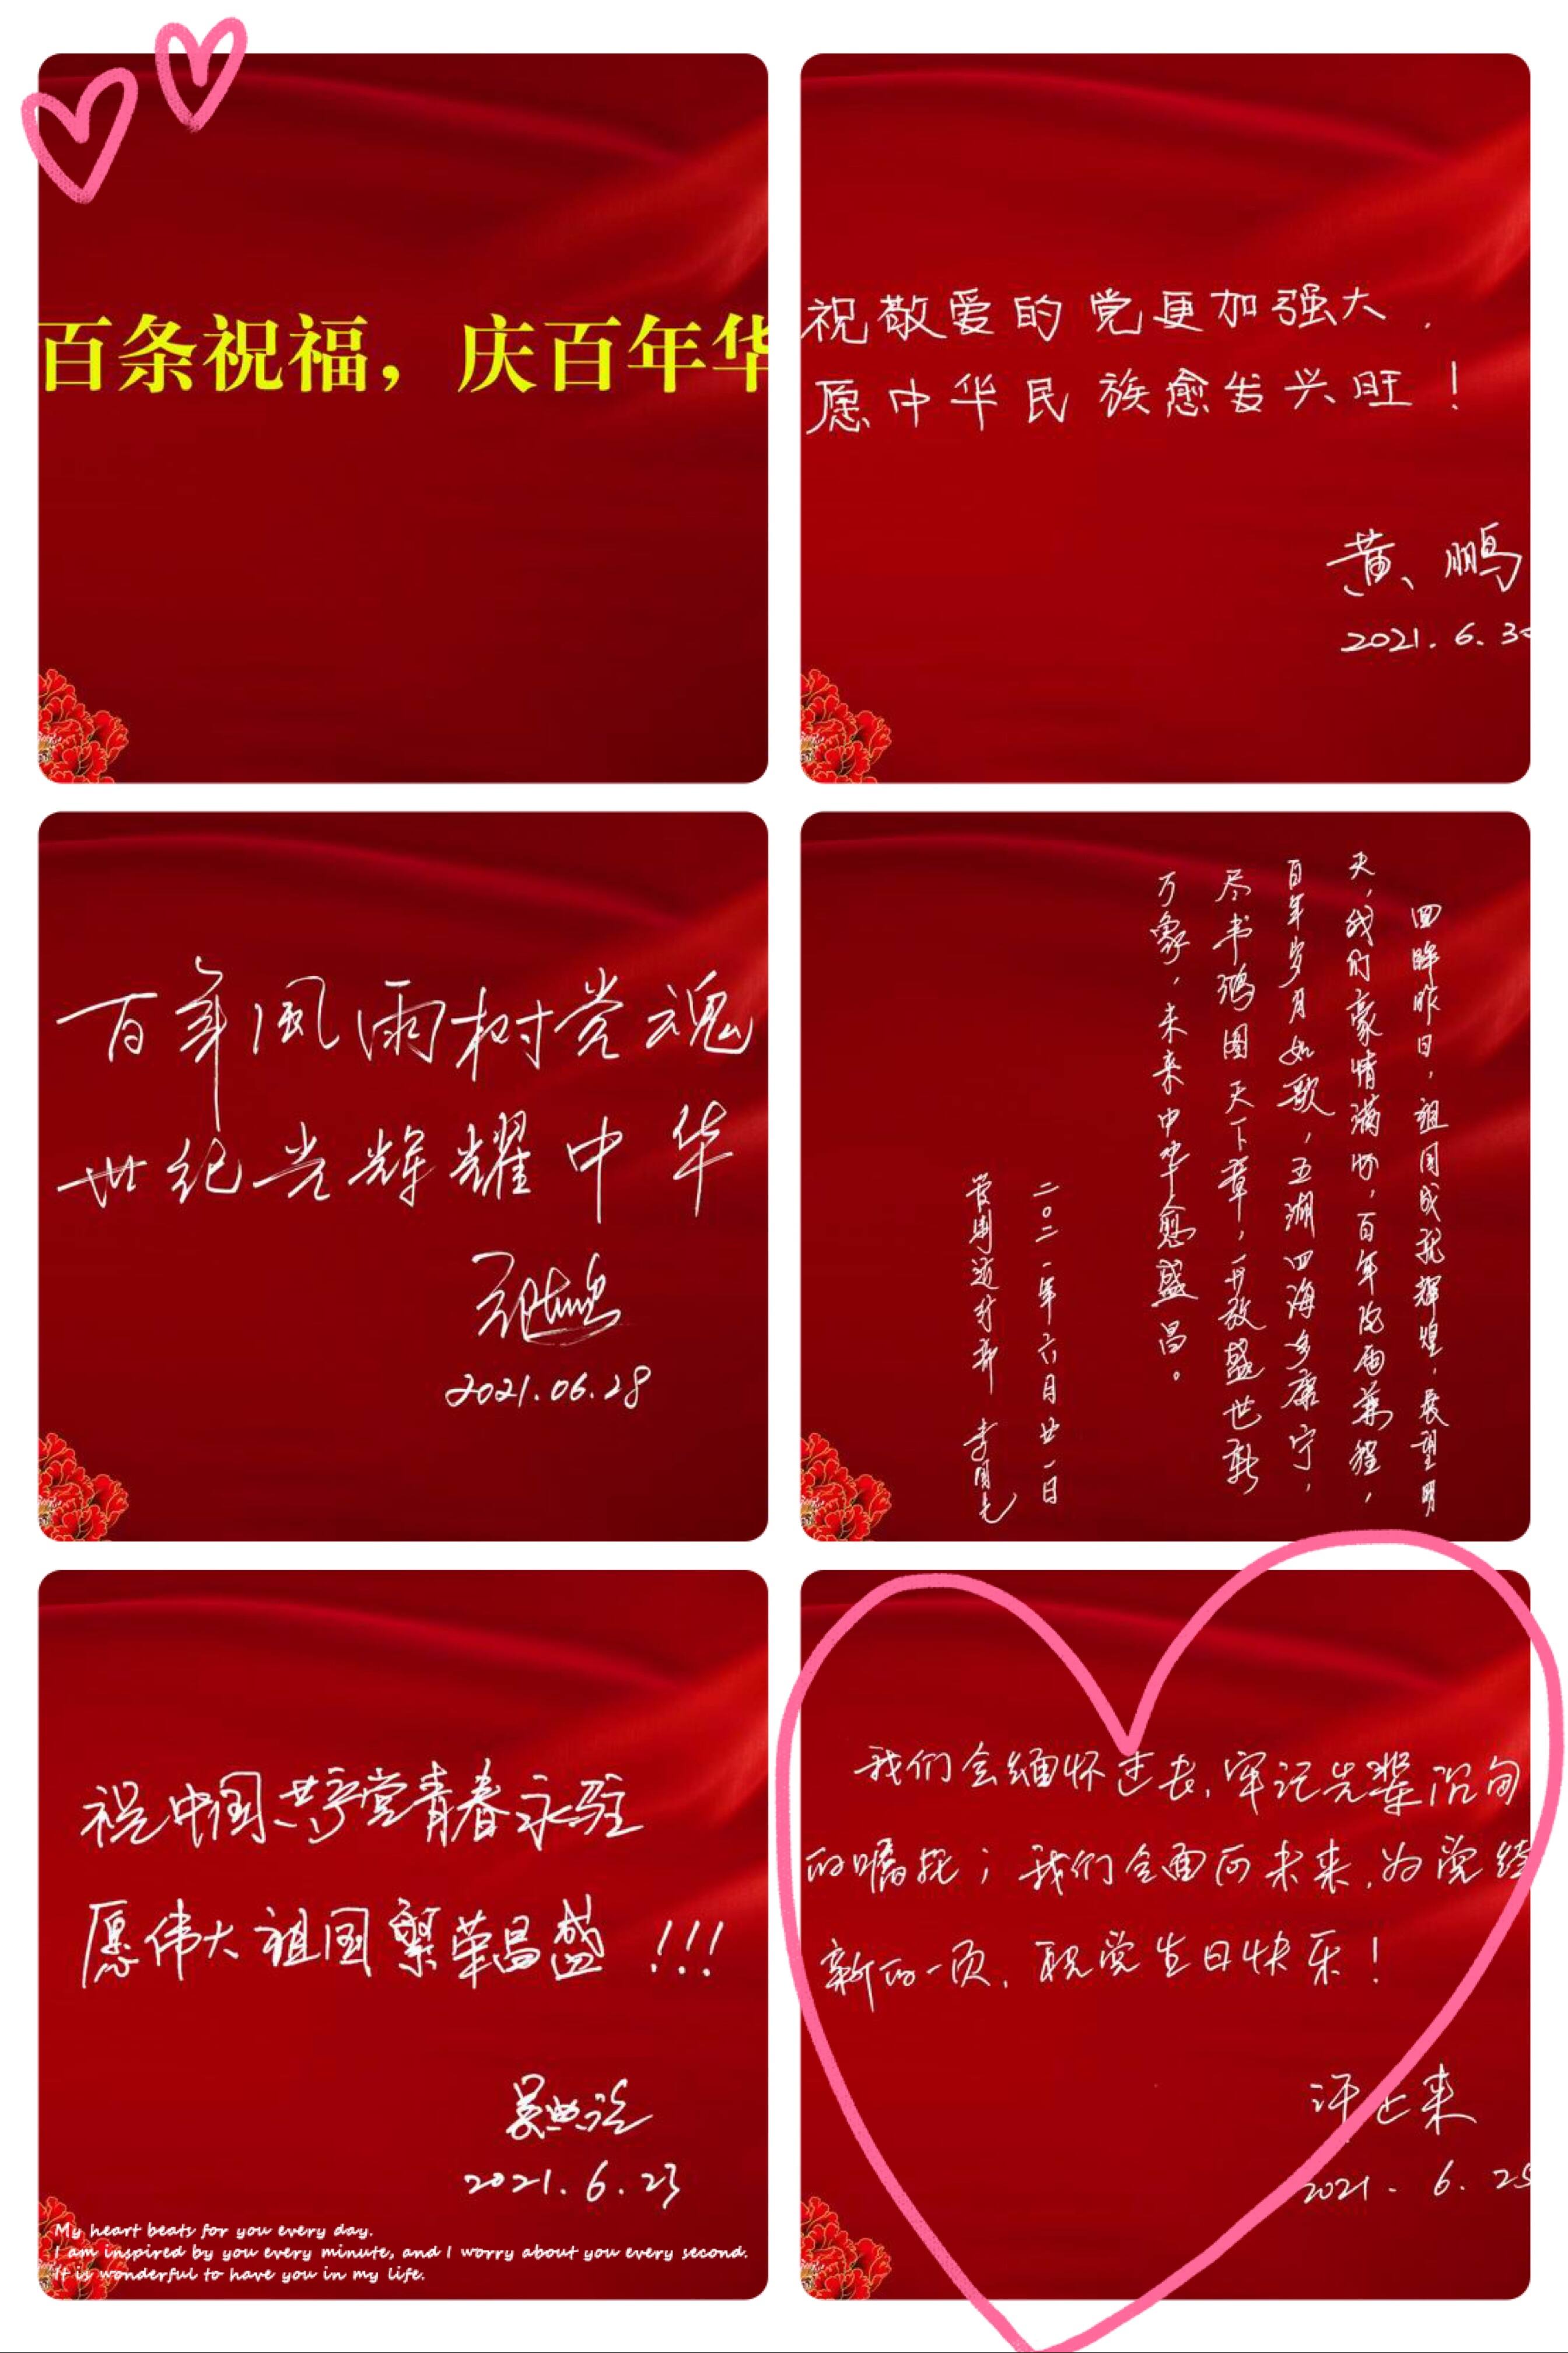 百条祝福，庆百年华
祝敬爱的党更加强大．
愿中华民族愈发兴旺！
黄鹏
2021.6.30
百年風雨树党魂
世纪光辉耀中华
2021.06.28
回眸昨日，祖国成就辉煌，展望明
天，我们豪情满怀，百年风雨兼程，
百年岁月如歌，五湖四海多康宁，
尽书鸿图天下章，开放盛世新
万象，未来中华愈盛昌。
二〇二一年六月廿一日
李国光
祝中国共产党青春永驻
愿伟大祖国繁荣昌盛!!!
2021.6.23
My heart beats for you every day.
I am inspired by you every minute, and I worry about you every second.
It is wonderful to have you in my life.
我们会缅怀过去，牢记先辈
的嘱托；我们会面向未来，为党
新的一页，祝党生日快乐！
2021.6.25